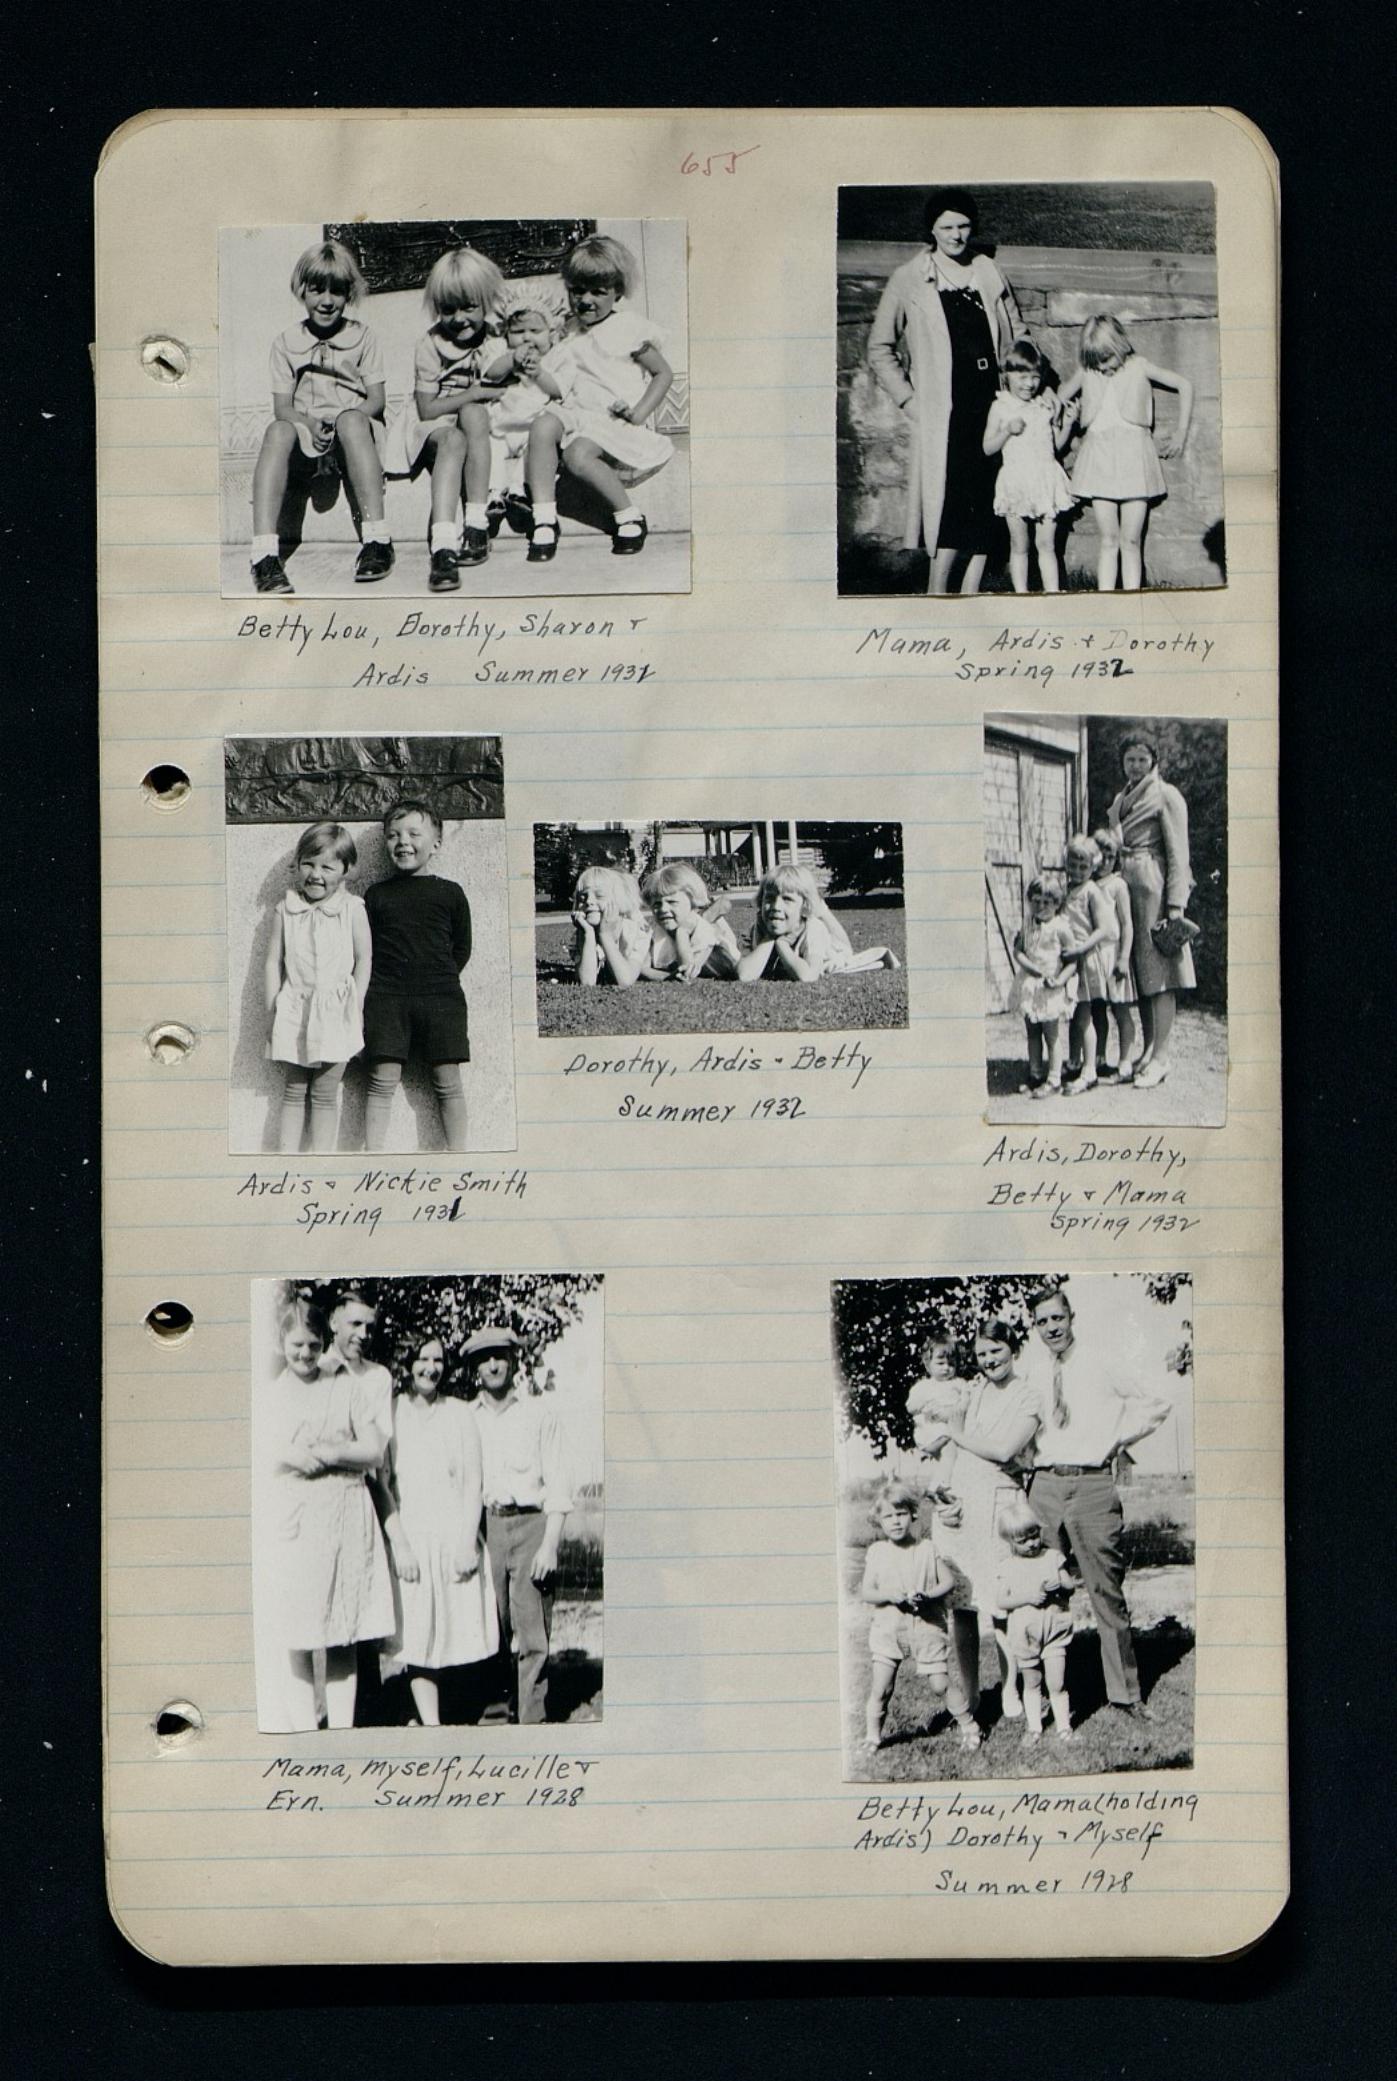 655
Betty Lou, Dorothy, Sharon &
Ardis Summer 1932
Mama, Ardis & Dorothy
Spring 1932
Ardis & Nickie Smith
Spring 1931
Dorothy, Ardis & Betty
Summer 1932
Ardis, Dorothy,
Betty & Mama
Spring 1932
Mama, Myself, Lucille &
Ern. Summer 1928
Betty Lou, Mama (holding
Ardis) Dorothy & Myself
Summer 1928